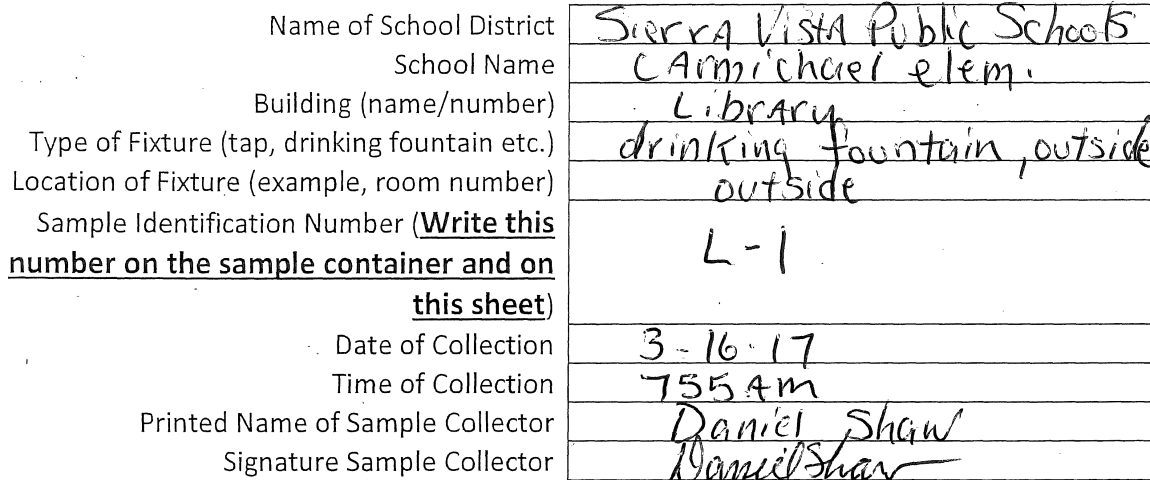 Name of School District Sierra Vista Public Schools
School Name Carmichael elem.
Building (name/number) Library
Type of Fixture (tap, drinking fountain etc.) drinking fountain, outside
Location of Fixture (example, room number) outside
Sample Identification Number (Write this
number on the sample container and on L-1
this sheet)
Date of Collection 3-16-17
Time of Collection 755 AM
Printed Name of Sample Collector Daniel Shaw
Signature Sample Collector Daniel Shaw